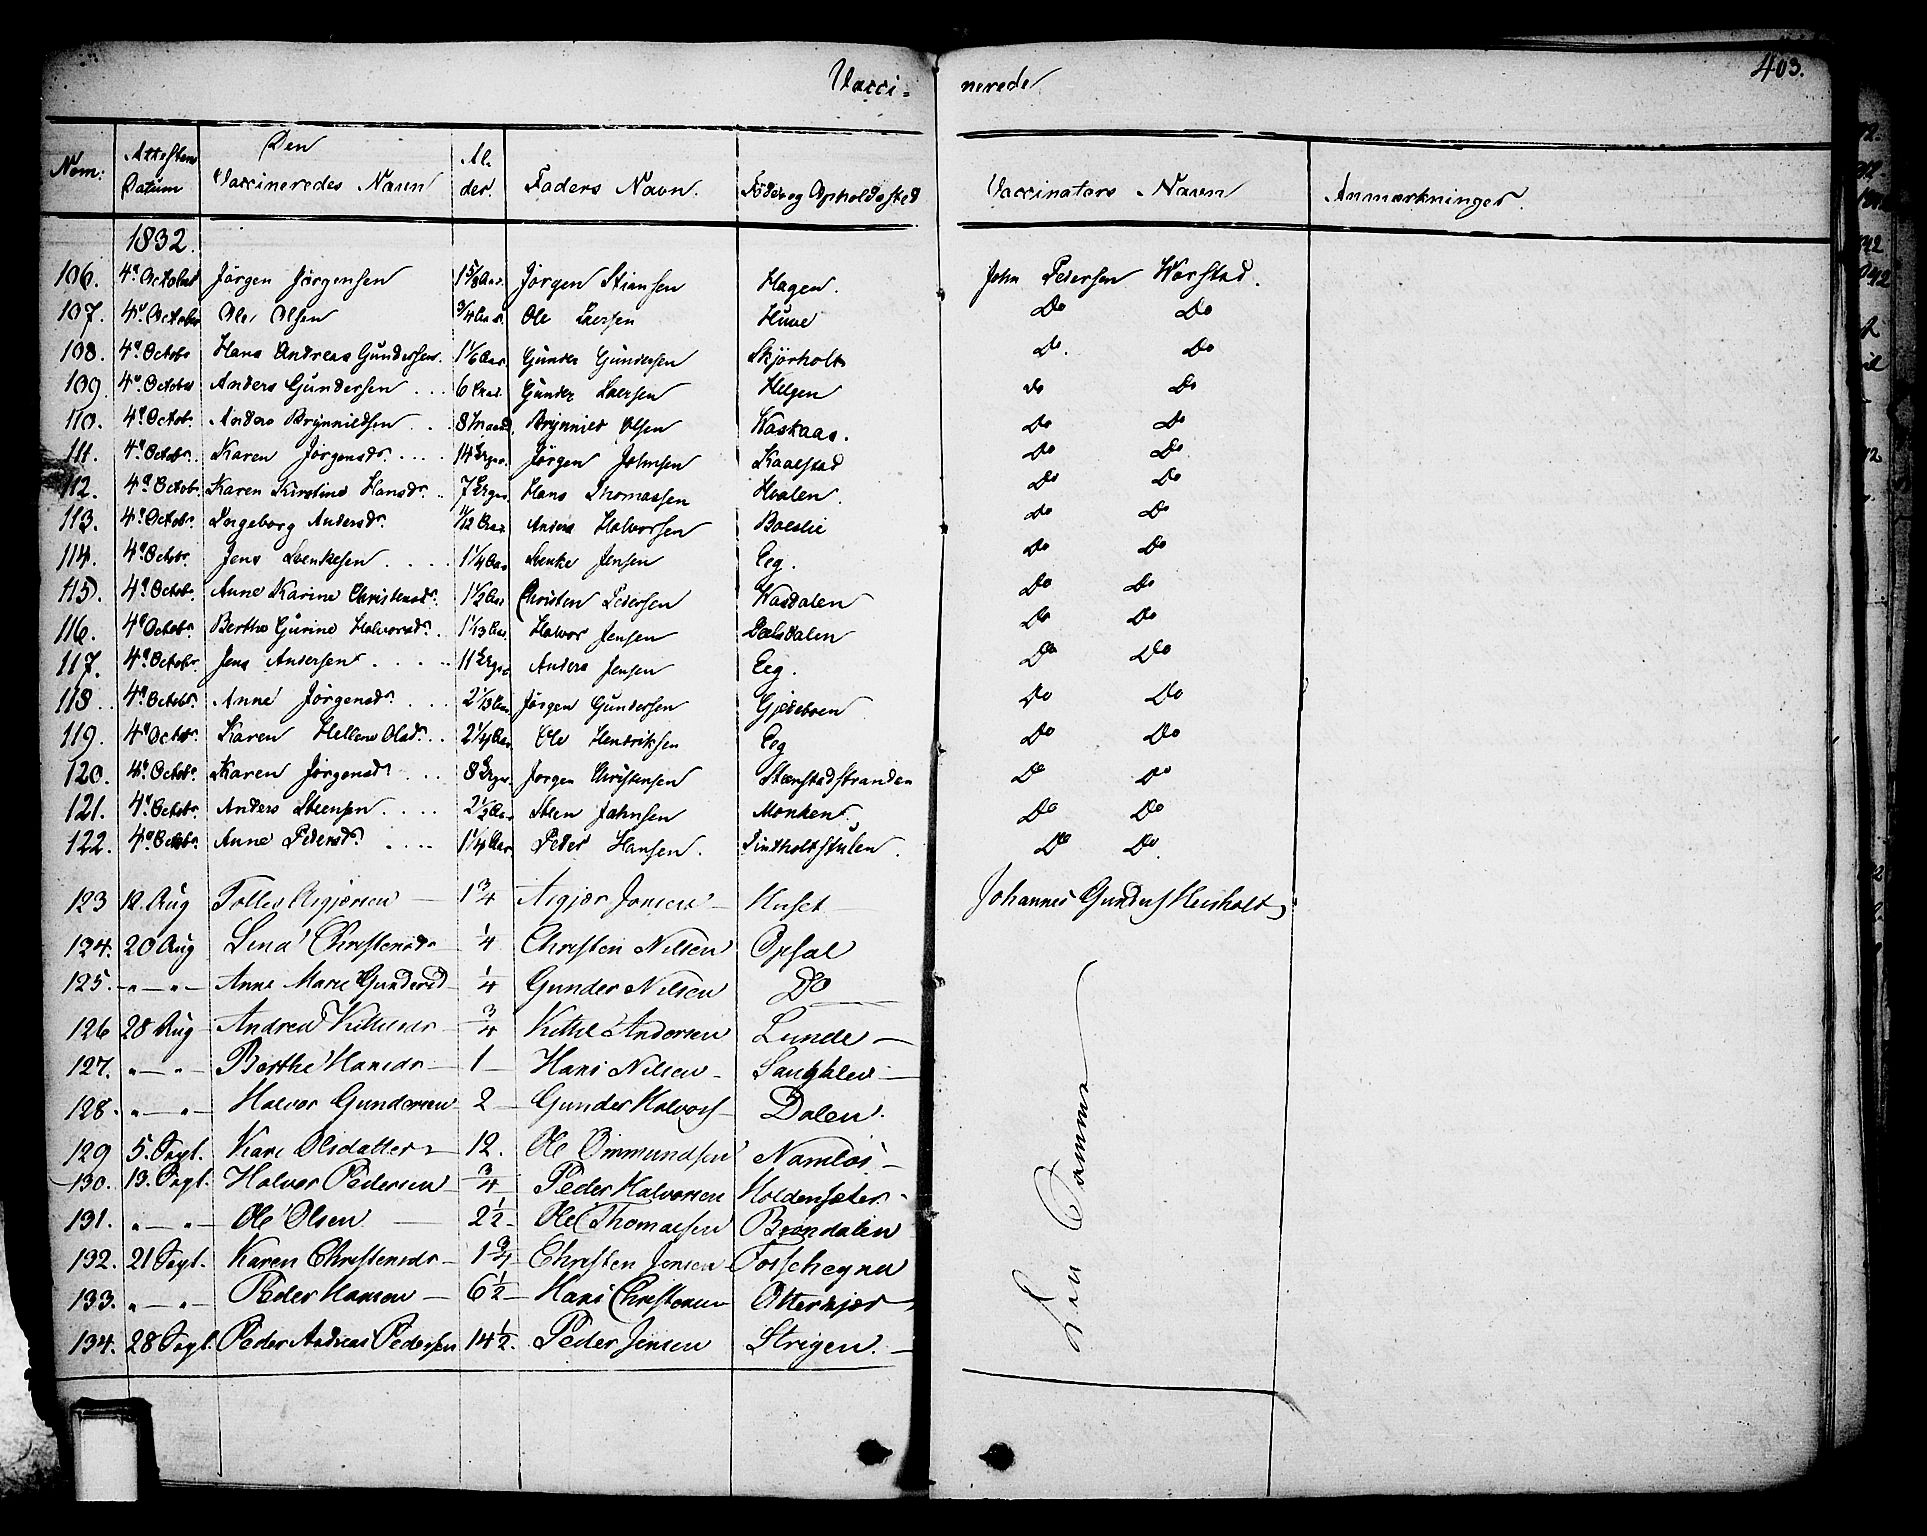 Vacci- nerede 403.
Nom: Attesten Datum Den Vaccineredes Navn Al. der. Faders Navn. Føde og Opholdssted Vaccinators Navn Anmærkninger.
1832.
106. 4d October Jørgen Jørgensen 1 5/8 Aar. Jørgen Stiansen Hagen. John Pedersen Warstad.
107. 4d October Ole Olsen 3/4 Aar. Ole Larsen Huve Do Do
108. 4d Octobr Hans Andreas Gundersen. 1 1/6 Aar. Gunder Gundersen Skjørholt Do. Do
109. 4d October Anders Gundersen . . . 6 Aar. Gunder Larsen Helgen Do Do
110. 4d Octobr. Anders Brynnildsen . . . 8 Maand. Brynnild Olsen Kaskaas. Do Do
111. 4d Octobr. Karen Jørgensdr. . . . . 14 Uger. Jørgen Johnsen Kaalstad Do Do
112. 4d Octobr. Karen Kirstine Hansdr. . . 7 Uger. Hans Thomassen Hvalen. Do Do
113. 4d Octobr. Ingeborg Andersdr. 11/12 Aar Anders Halvorsen Baeslie Do Do
114. 4d Octobr. Jens Leenkesen . . . . . 1 1/4 Aar Leenke Jensen Eeg. Do Do
115. 4d Octobr. Anne Karine Christensdr. 1 1/2 Aar Christen Pedersen Wasdalen Do Do
116. 4d Octobr. Berthe Gurine Halvorsdr. . 1 1/3 Aar. Halvor Jensen Dalsdalen Do Do
117. 4d Octobr Jens Andersen . . . . . 11 Uger Anders Jensen Eeg. Do Do
118. 4d Octobr. Anne Jørgensdr . . . . 2 1/3 Aar. Jørgen Gundersen Gjedeboen Do Do
119. 4d Octobr. Karen Hellene Olsdr. . . 2 1/4 Aar. Ole Hendriksen Eeg Do Do
120. 4d Octobr. Karen Jørgensdr . . . 8 Uger Jørgen Christensen Steenstadstranden Do Do
121. 4d Octobr. Anders Steensen . . . . 2 1/2 Aar Steen Johnsen Monken Do Do
122. 4d Octobr. Anne Pedersdr. . . . . 1 1/4 Aar. Peder Hansen. Do Do.
123 12. Aug Tollev Asgjersen — 1 3/4 Asgjer Jensen — Huset — Johannes Gunders Heisholt
124. 20 Aug Lena Christensdr 1/4 Christen Nilsen Opsal
125. „ — „ — Anne Marie Gundersd 1/4 Gunder Nilsen Do
126 28 Aug Andrea Kittilsdr 3/4 Kittil Andersen Lunde —
127. „ — „ — Berthe Hansdr — 1 — Hans Nilsen — Saughlev —
128. „ — „ — Halvor Gundersen 2 — Gunder Halvors Dalen.
129 5. Sept. Kari Olsdatter 12. Ole Ommundsen Namlos —
130. 13. Sept. Halvor Pedersen 3/4 Peder Halvorsen Holdensæter
131. „ — „ — Ole Olsen — 2 1/2 — Ole Thomassen Brøndalen
132. 21 Sept. Karen Christensdr 1 3/4 Christen Jensen
133. „ — „ — Peder Hansen — 6 1/2 — Hans Christensen Otterkjær
134. 28 Sept. Peder Andreas Pedersen 14 1/2. Peder Jensen Strigen. —
Den Samme